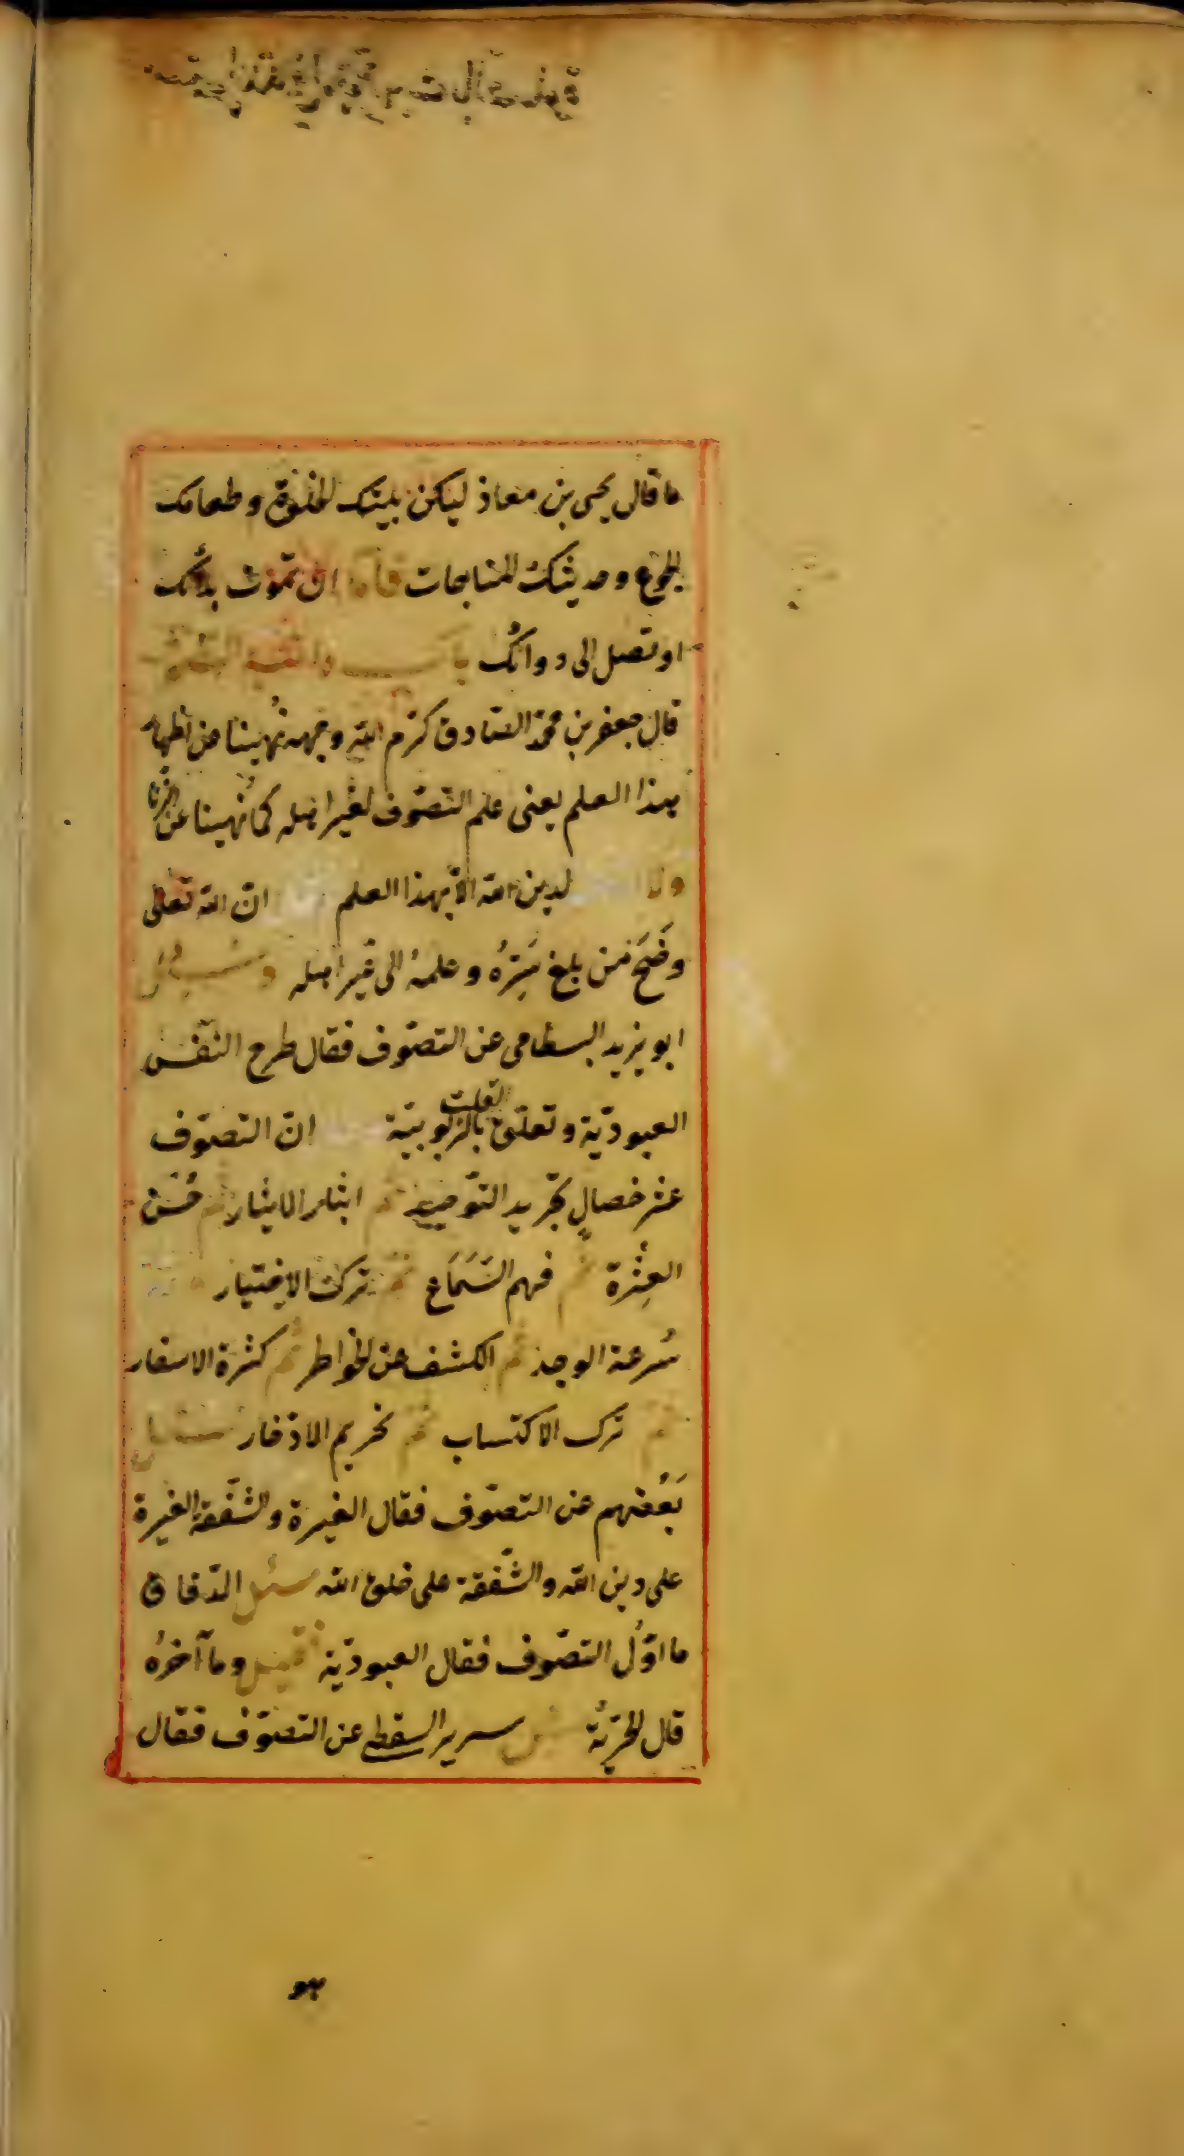 ما قال يحيى بن معاذ ليكن بيتك الخلوة وطعامك
الجوع وحديثك المناجات فاما ان تموت بدائك
او تصل الى دوائك باب
قال جعفر بن محمد الصادق كرم الله وجهه نهينا عن اظهار
هذا العلم يعنى علم التصوف لغير اهله كما نهينا عن الزنا
لدين الله الا بهذا العلم انّ الله تعالى
وضَحَ من بلغ سَِرّهُ وعلمهُ الى غير اهله وسئل
ابو يزيد البسطامى عن التصوف فقال طرح النفس
العبوديّة وتعلّق القلب بالربوبيّة انّ التصوّف
عشر خصالٍ تجريد التوحيد ثم ايثار الايثار ثم حُسْن
العِشْرة ثم فهم السَّمَاع ثم ترك الاختيار
سُرعة الوجد ثم الكشف عن الخواطر ثم كثرة الاسفار
ثم ترك الاكتساب ثم تحريم الادّخار سئل
بَعْضهم عن التصوّف فقال الغيرة والشّفقة الغيرة
على دين الله والشّفقة على خلق الله سئل الدّقاق
ما اوّلُ التصّوف فقال العبوديّة فقيل وما آخرُه
قال الحرّيّة سئل سرير السقطى عن التصوّف فقال
هو